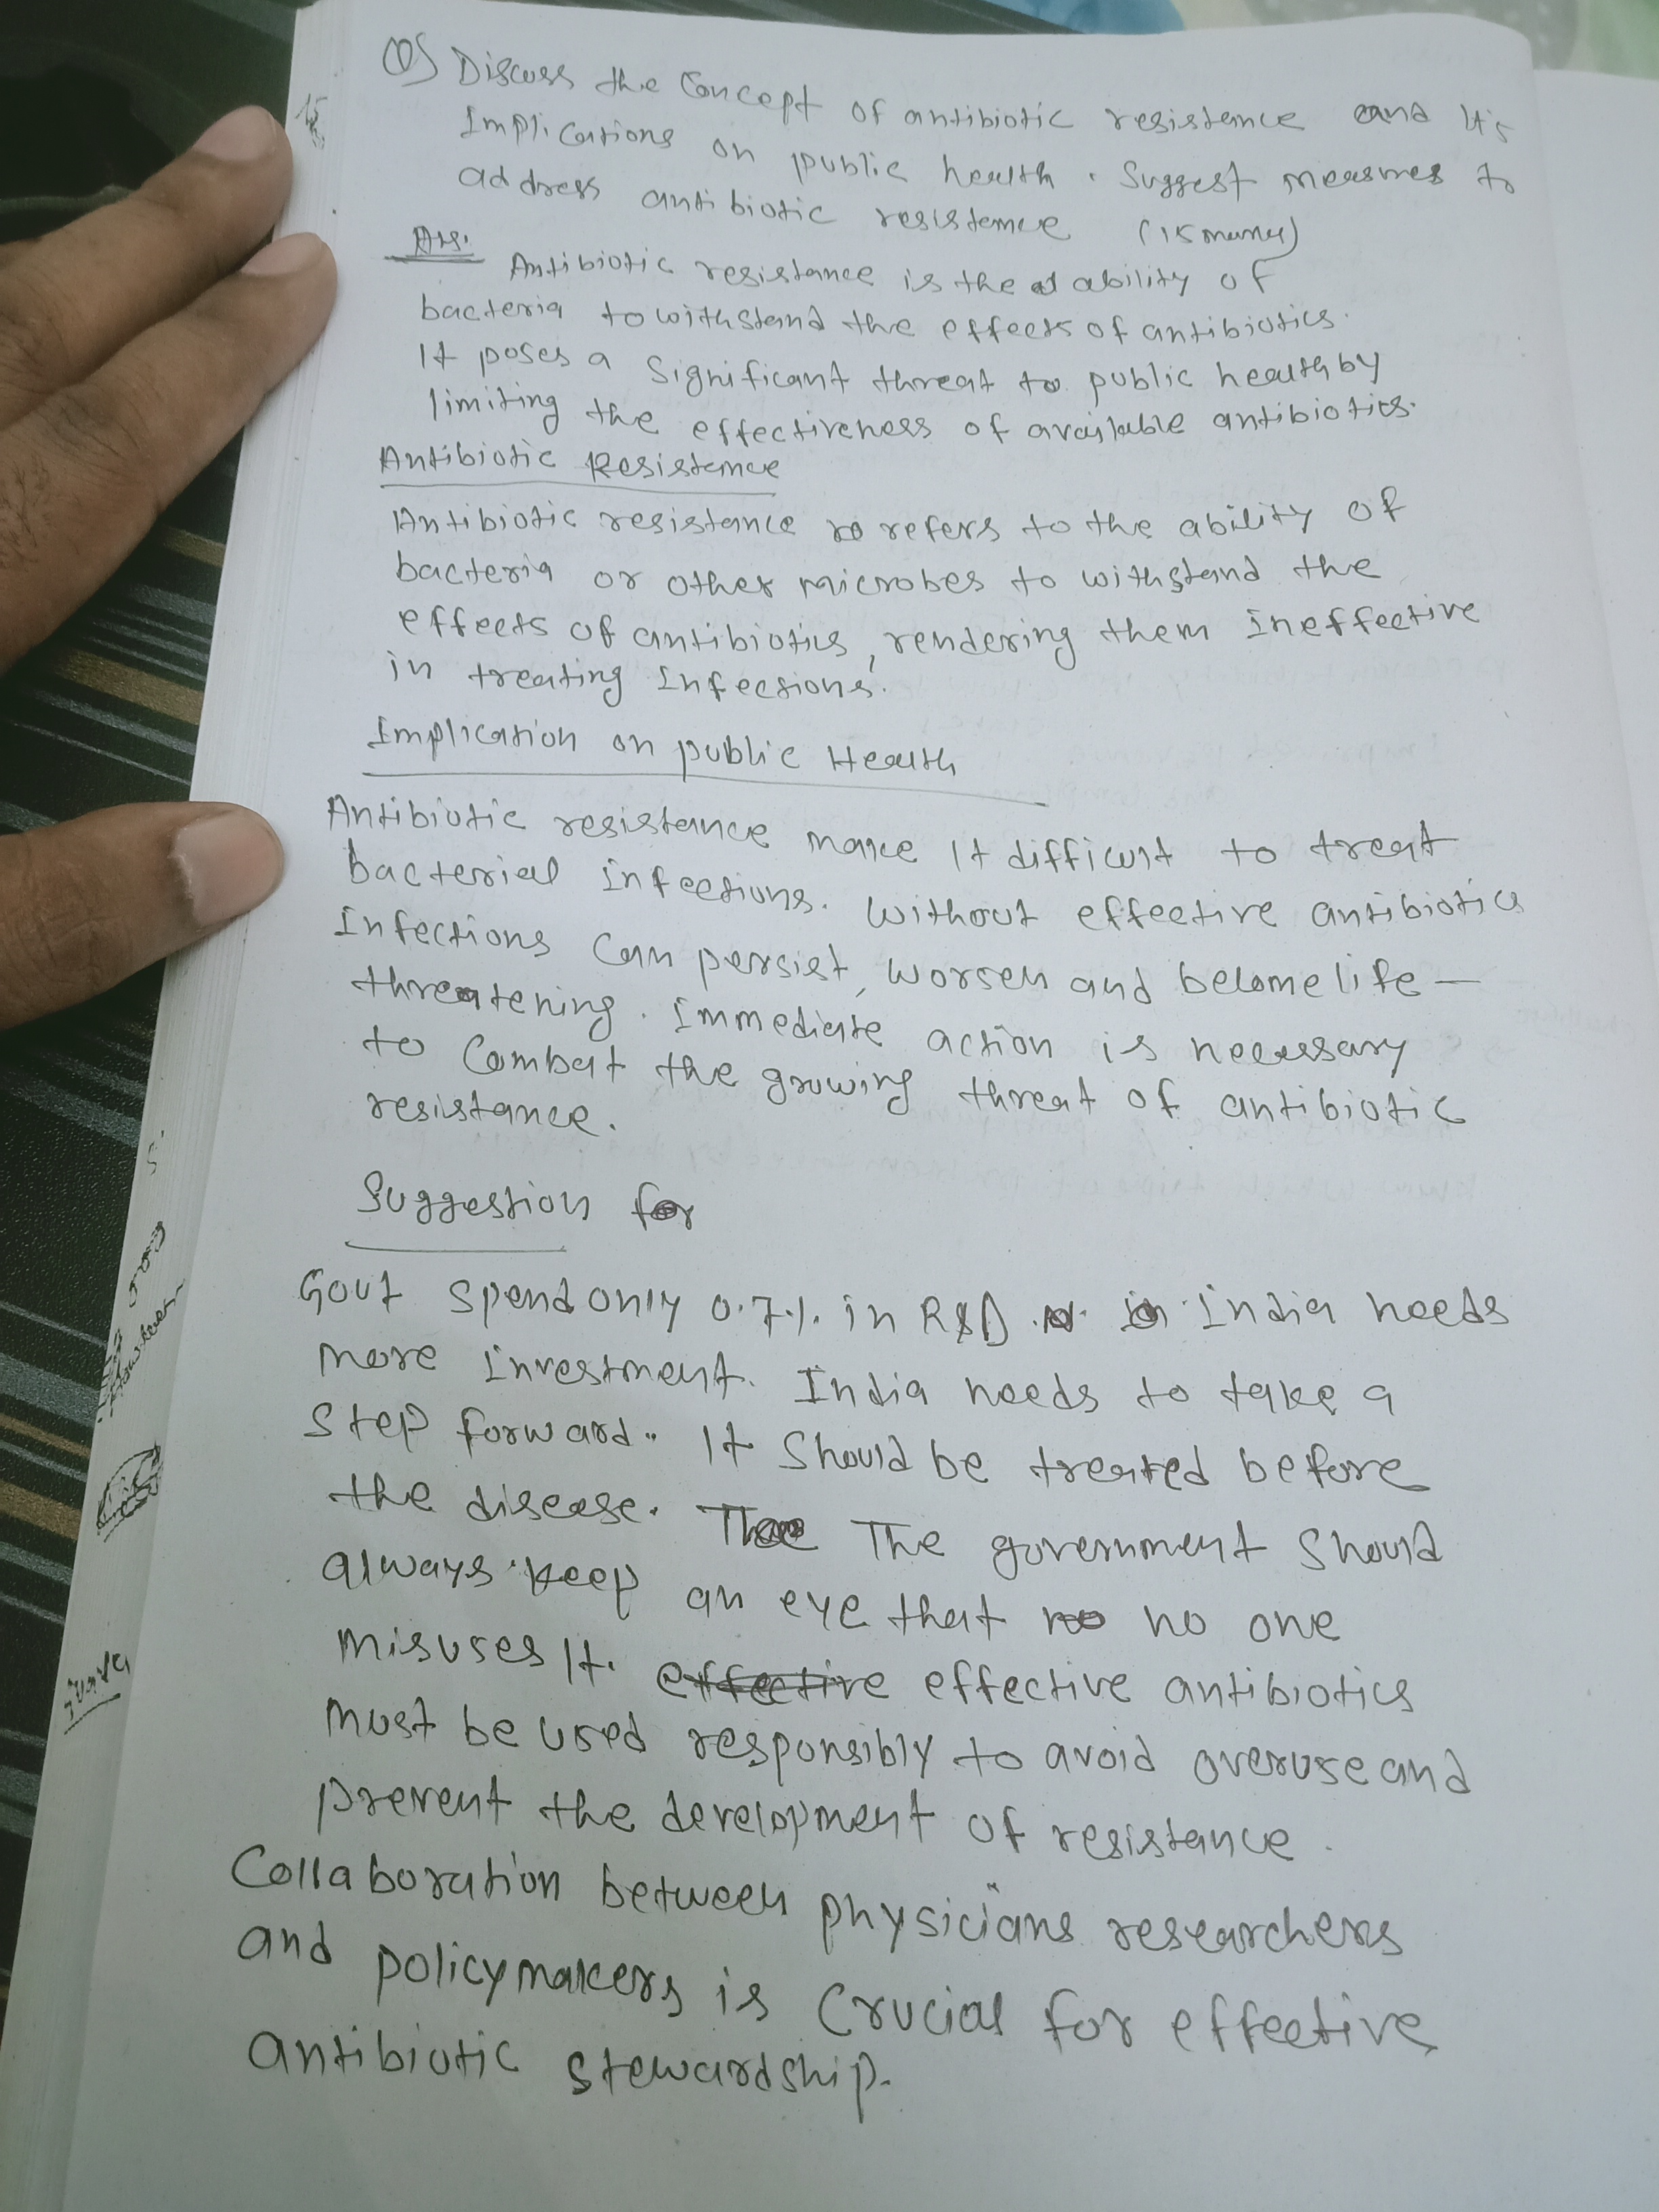 Q) Discuss the Concept of antibiotic resistence and It's
Implications on public health. Suggest measures to
address antibiotic resistence (15 marks)
Ans.
Antibiotic resistance is the ability of
bacteria to withstand the effects of antibiotics.
It poses a significant threat to public health by
limiting the effectiveness of available antibiotics.
Antibiotic Resistence
Antibiotic resistance refers to the ability of
bacteria or other microbes to withstand the
effects of antibiotics, rendering them Ineffective
in treating Infections.
Implication on public Health
Antibiotic resistance make It difficult to treat
bacterial infections. Without effective antibiotics
Infections Can persist, worsen and become life-
threatening. Immediate action is necessary
to Combat the growing threat of antibiotic
resistance.
Suggestion for
Govt spend only 0.7% in R&D. India needs
more investment. India needs to take a
Step forward. It Should be treated before
the disease. The government Should
always keep an eye that no one
misuses It. effective effective antibiotics
must be used responsibly to avoid overuse and
prevent the development of resistance.
Collaboration between physicians researchers
and policymakers is Crucial for effective
antibiotic stewardship.